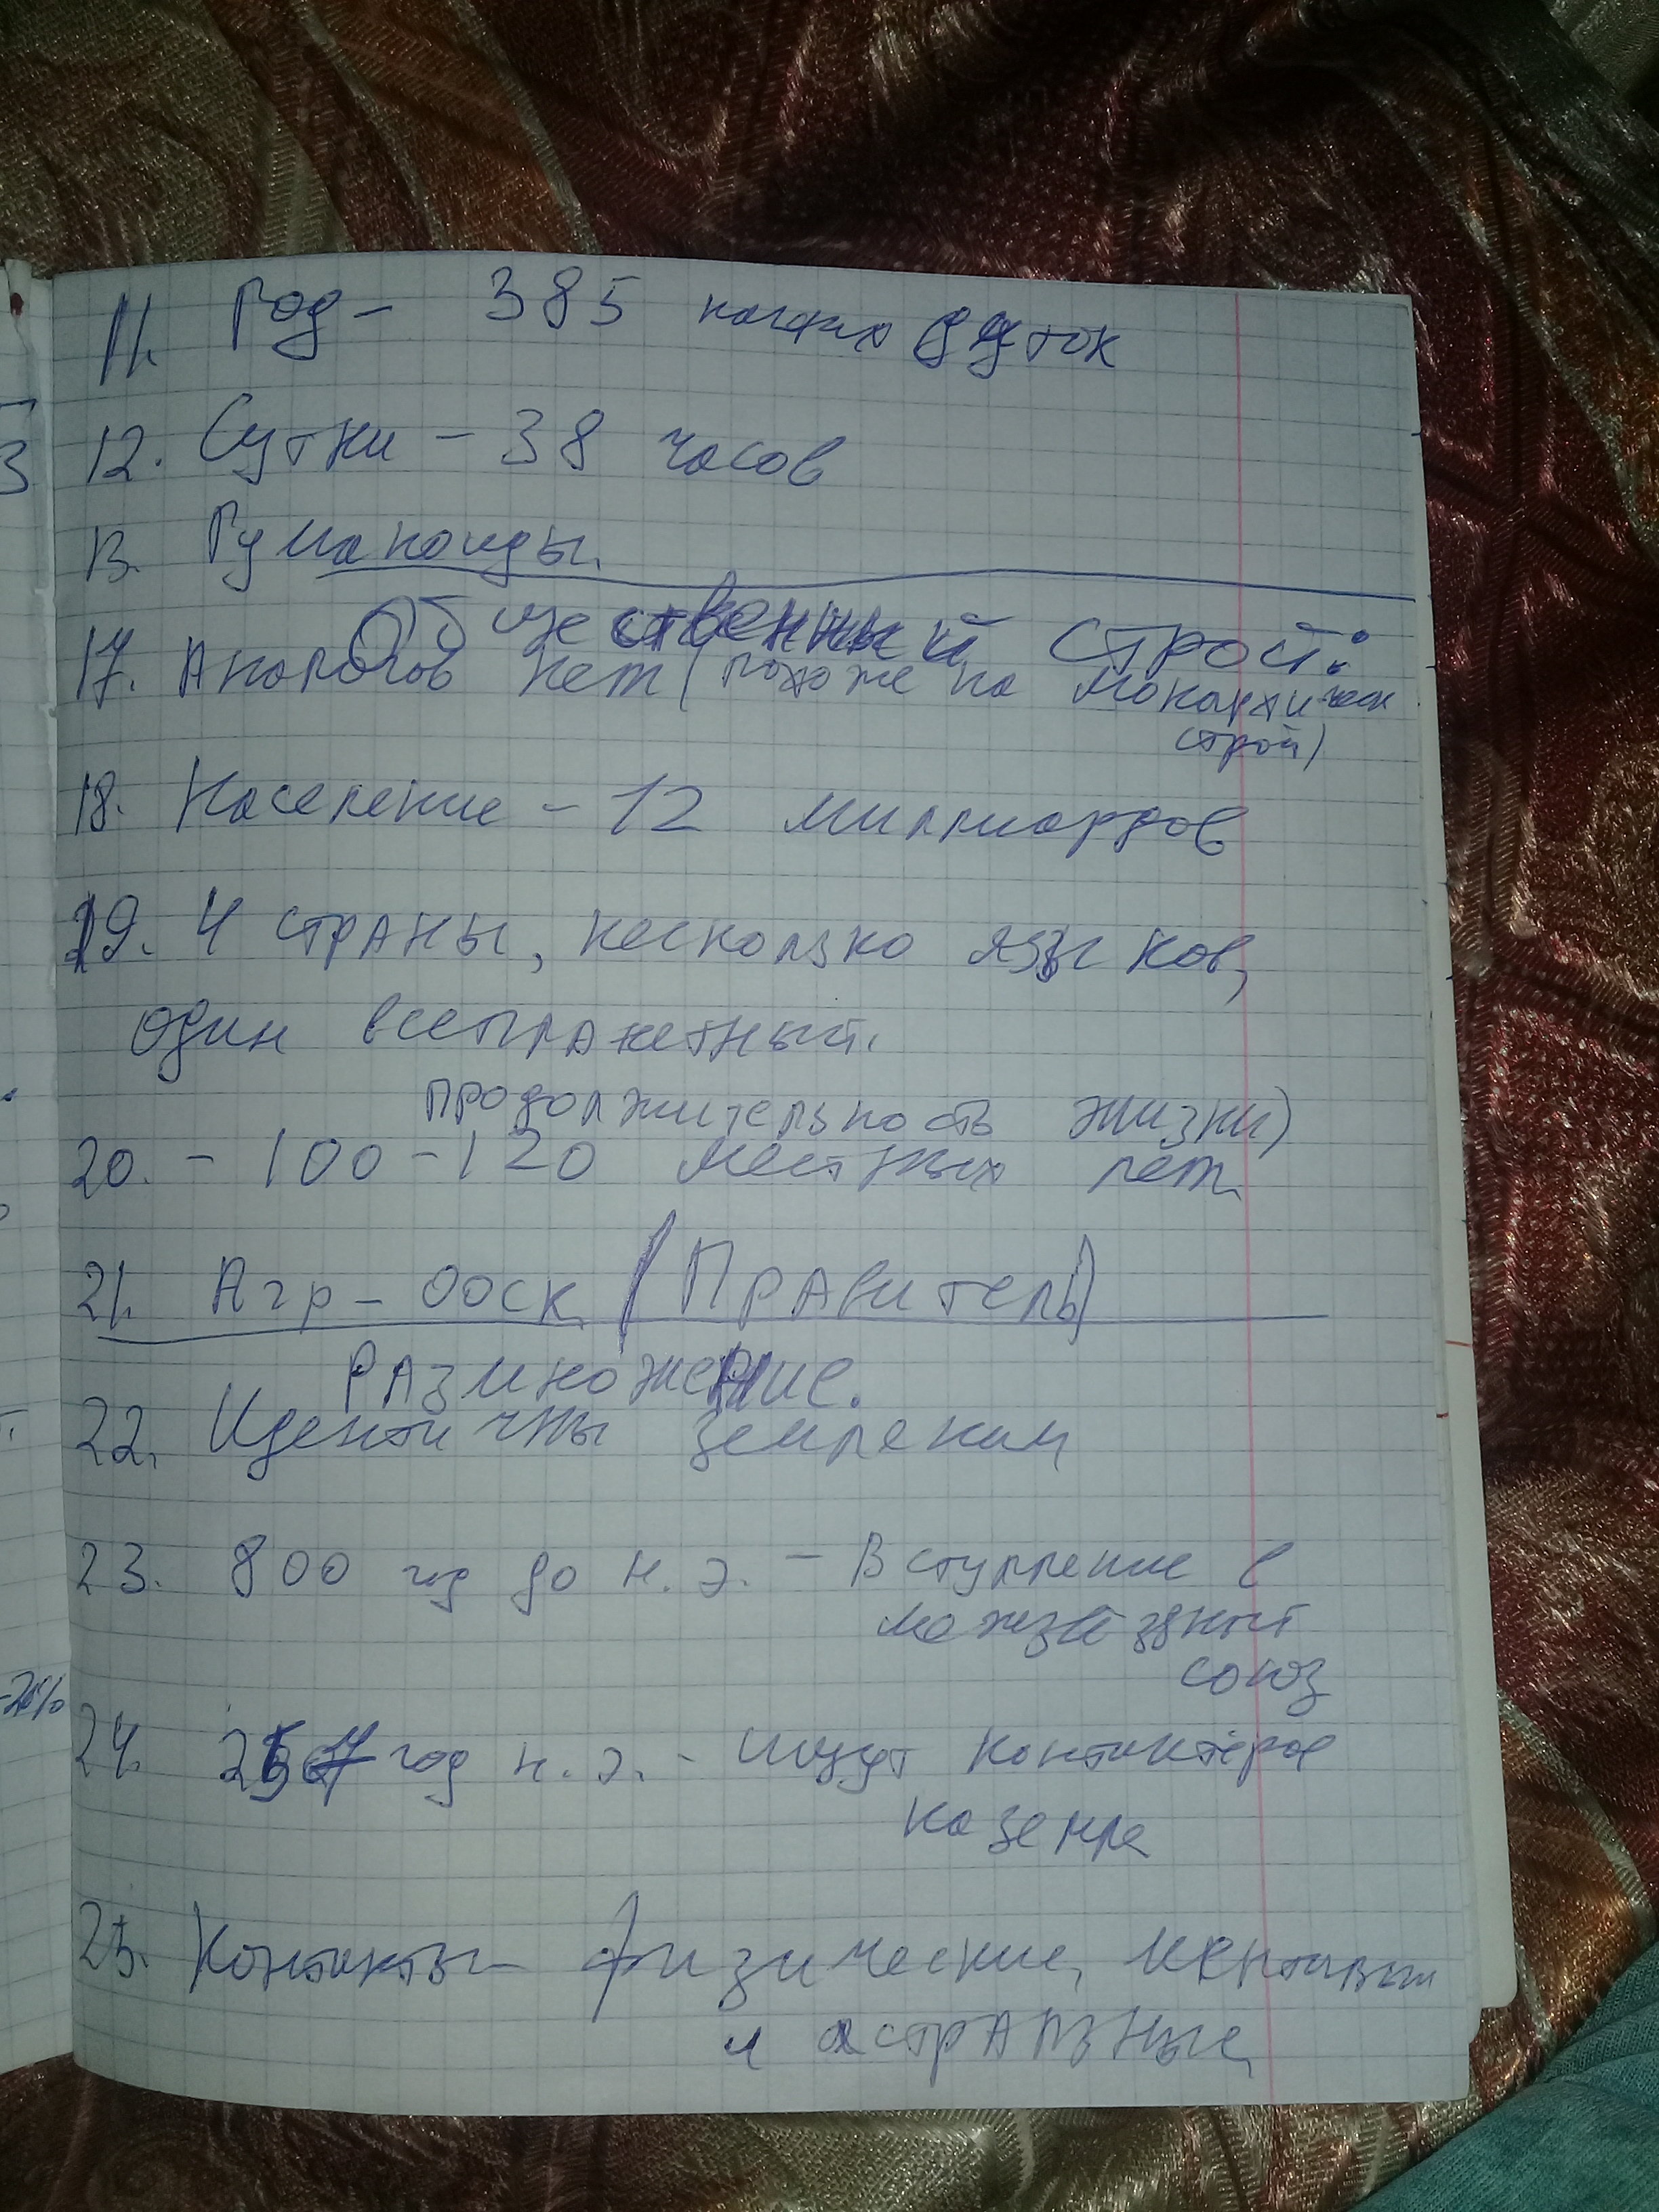 11. Год - 385 наших суток
3
12. Сутки - 38 часов
13. Гуманоиды.
Общественный строй:
17. Аналогов нет (похоже на монархическ
строй)
18. Население - 12 миллиардов
19. 4 страны, несколько языков,
один всепланетный.
продолжительность жизни)
20. - 100-120 местных лет.
21. Агр-Ооск (Правитель)
Размножение.
22. Идентичны землянам
23. 800 год до н.э. - Вступление в
межзвёздный
союз
24. год н.э. - ищут контактёров
на земле
25. Контакты - физические, ментальные
и астральные